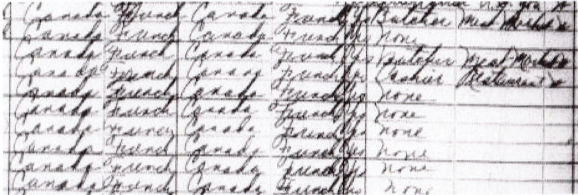 Canada French Canada French yes Butcher Meat Market
Canada French Canada French yes none
Canada French Canada French yes Butcher Meat Market
Canada French Canada French yes Cashier Restaurant
Canada French Canada French yes none
Canada French Canada French yes none
Canada French Canada French yes none
Canada French Canada French yes none
Canada French Canada French yes none
Canada French Canada French yes none